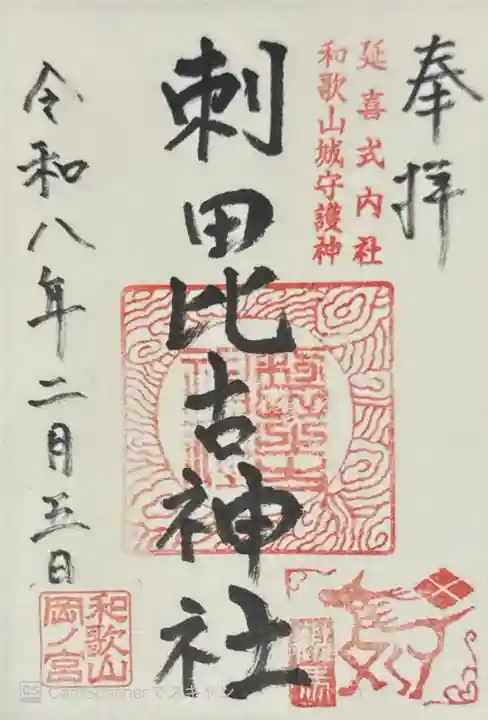 奉拝
延喜式内社
和歌山城守護神
刺田比古神社
令和八年二月三日
和歌山
岡ノ宮
CS CamScannerでスキャン